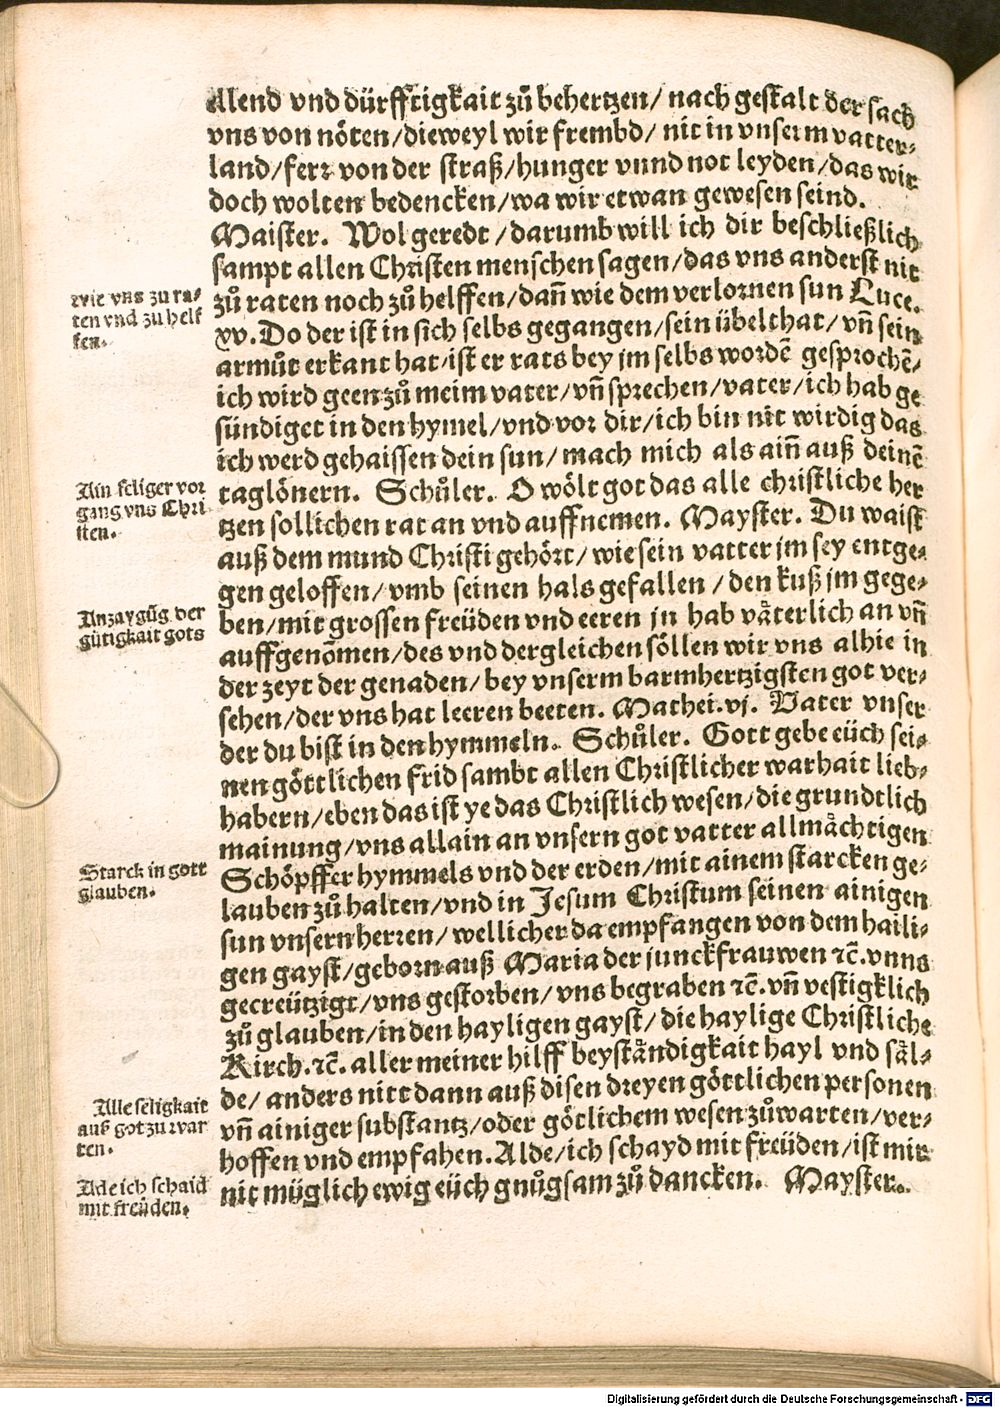 ellend vnd dürfftigkait zů behertzen/ nach gestalt der sach
vns von nöten/dieweyl wir frembd/ nit in vnserm vatter⸗
land/ferꝛ von der straß/hunger vnnd not leyden/das wir
doch wolten bedencken/wa wir etwan gewesen seind.
Maister. Wol geredt /darumb will ich dir beschließlich
sampt allen Christen menschen sagen/das vns anderst nit
zů raten noch zů helffen/dañ wie dem verlornen sun Luce.
xv. Do der ist in sich selbs gegangen/sein übelthat/ vñ sein
armůt erkant hat/ist er rats bey jm selbs wordẽ gesprochẽ/
ich wird geen zů meim vater/vñ sprechen/vater/ich hab ge
sündiget in den hymel/vnd vor dir/ich bin nit wirdig das
ich werd gehaissen dein sun/ mach mich als aiñ auß deinẽ
taglönern. Schůler. O wölt got das alle christliche her
tzen sollichen rat an vnd auffnemen. Mayster. Du waist
auß dem mund Christi gehört/ wie sein vatter jm sey entge⸗
gen geloffen/vmb seinen hals gefallen /den kuß jm gege⸗
ben/mit grossen freüden vnd eeren jn hab väterlich an vñ
auffgenom̃en/des vnd dergleichen söllen wir vns alhie in
der zeyt der genaden/ bey vnserm barmhertzigsten got ver⸗
sehen/der vns hat leeren beeten. Mathei.vj. Vater vnser
der du bist in den hymmeln. Schůler. Gott gebe eüch sei⸗
nen göttlichen frid sambt allen Christlicher warhait lieb⸗
habern/eben das ist ye das Christlich wesen/die grundtlich
mainung/vns allain an vnsern got vatter allmächtigen
Schöpffer hymmels vnd der erden/mit ainem starcken ge⸗
lauben zů halten/vnd in Jesum Christum seinen ainigen
sun vnsern herren/ wellicher da empfangen von dem haili⸗
gen gayst/geborn auß Maria der junckfrauwen ⁊c̃. vnns
gecreützigt/vns gestorben/vns begraben ⁊c̃. vñ vestigklich
zů glauben/in den hayligen gayst/ die haylige Christliche
Kirch. ⁊c̃. aller meiner hilff beyständigkait hayl vnd säl⸗
de/ anders nitt dann auß disen dreyen göttlichen personen
vñ ainiger substantz/oder götlichem wesen zůwarten/ver⸗
hoffen vnd empfahen. Alde/ich schayd mit freüden/ist mir
nit müglich ewig eüch gnůgsam zů dancken. Mayster.
Wie vns zu ra⸗
ten vnd zu helf
fen.
Ain seliger vor
gang vns Chri
sten.
Anzaygũg der
gütigkait gots
Starck in gott
glauben.
Alle seligkait
auß got zu war
ten.
Ade ich schaid
mit freüden.
Digitalisierung gefördert durch die Deutsche Forschungsgemeinschaft - DFG